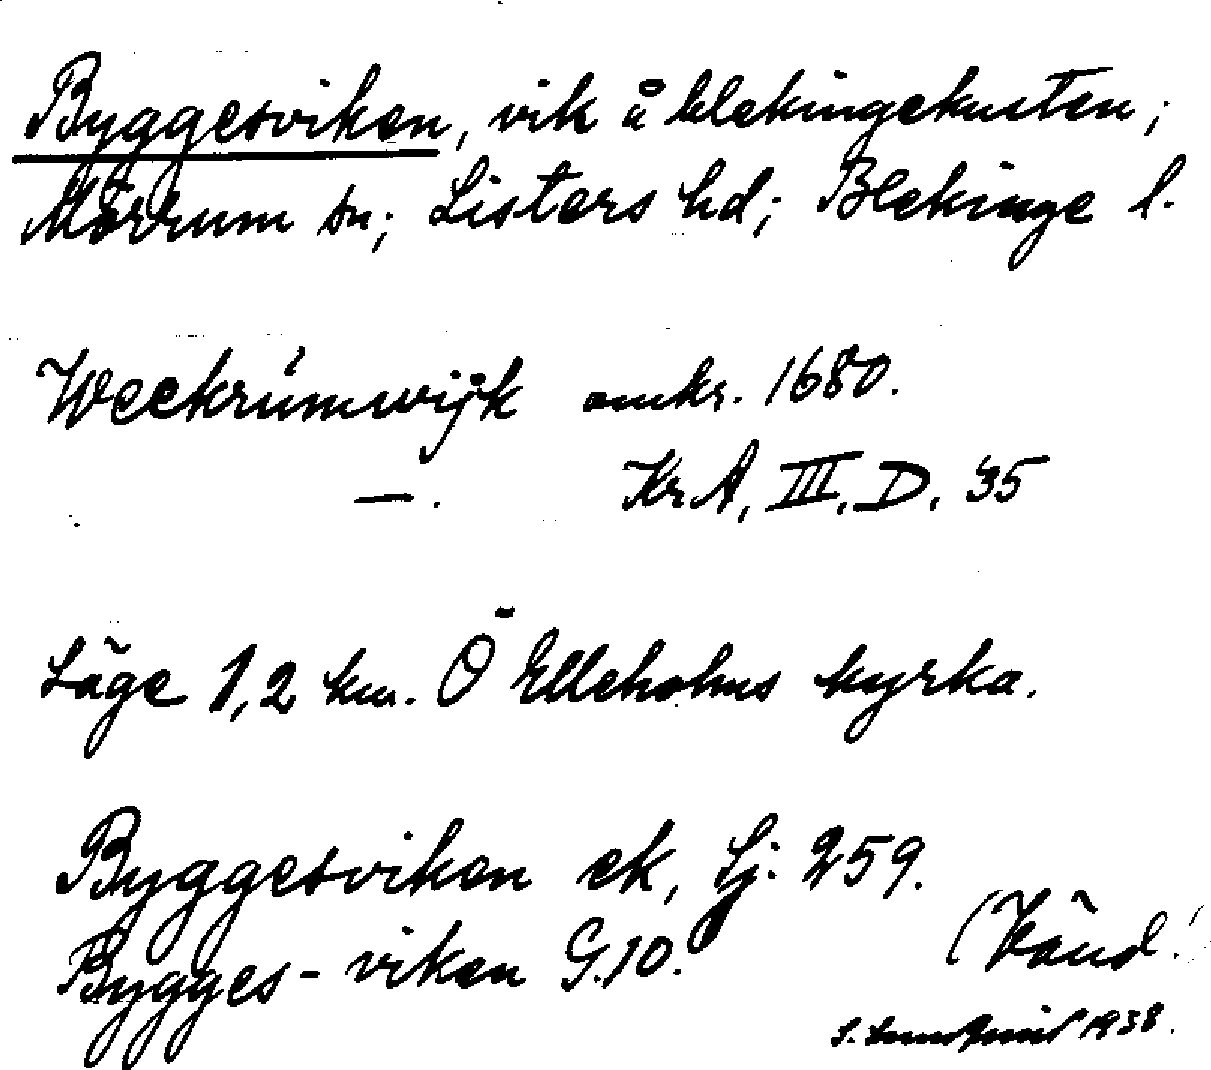 Byggesviken, vik å blekingekusten;
Mörrum sn; Listers hd; Blekinge l.
Weckrúmwijk omkr. 1680.
—. KrA, III. D. 35
Läge 1,2 km. Ö Elleholms kyrka.
Byggesviken ek, Sj. 259.
Bygges-viken G.10.
(Vänd!
S. Lundqvist 1938.